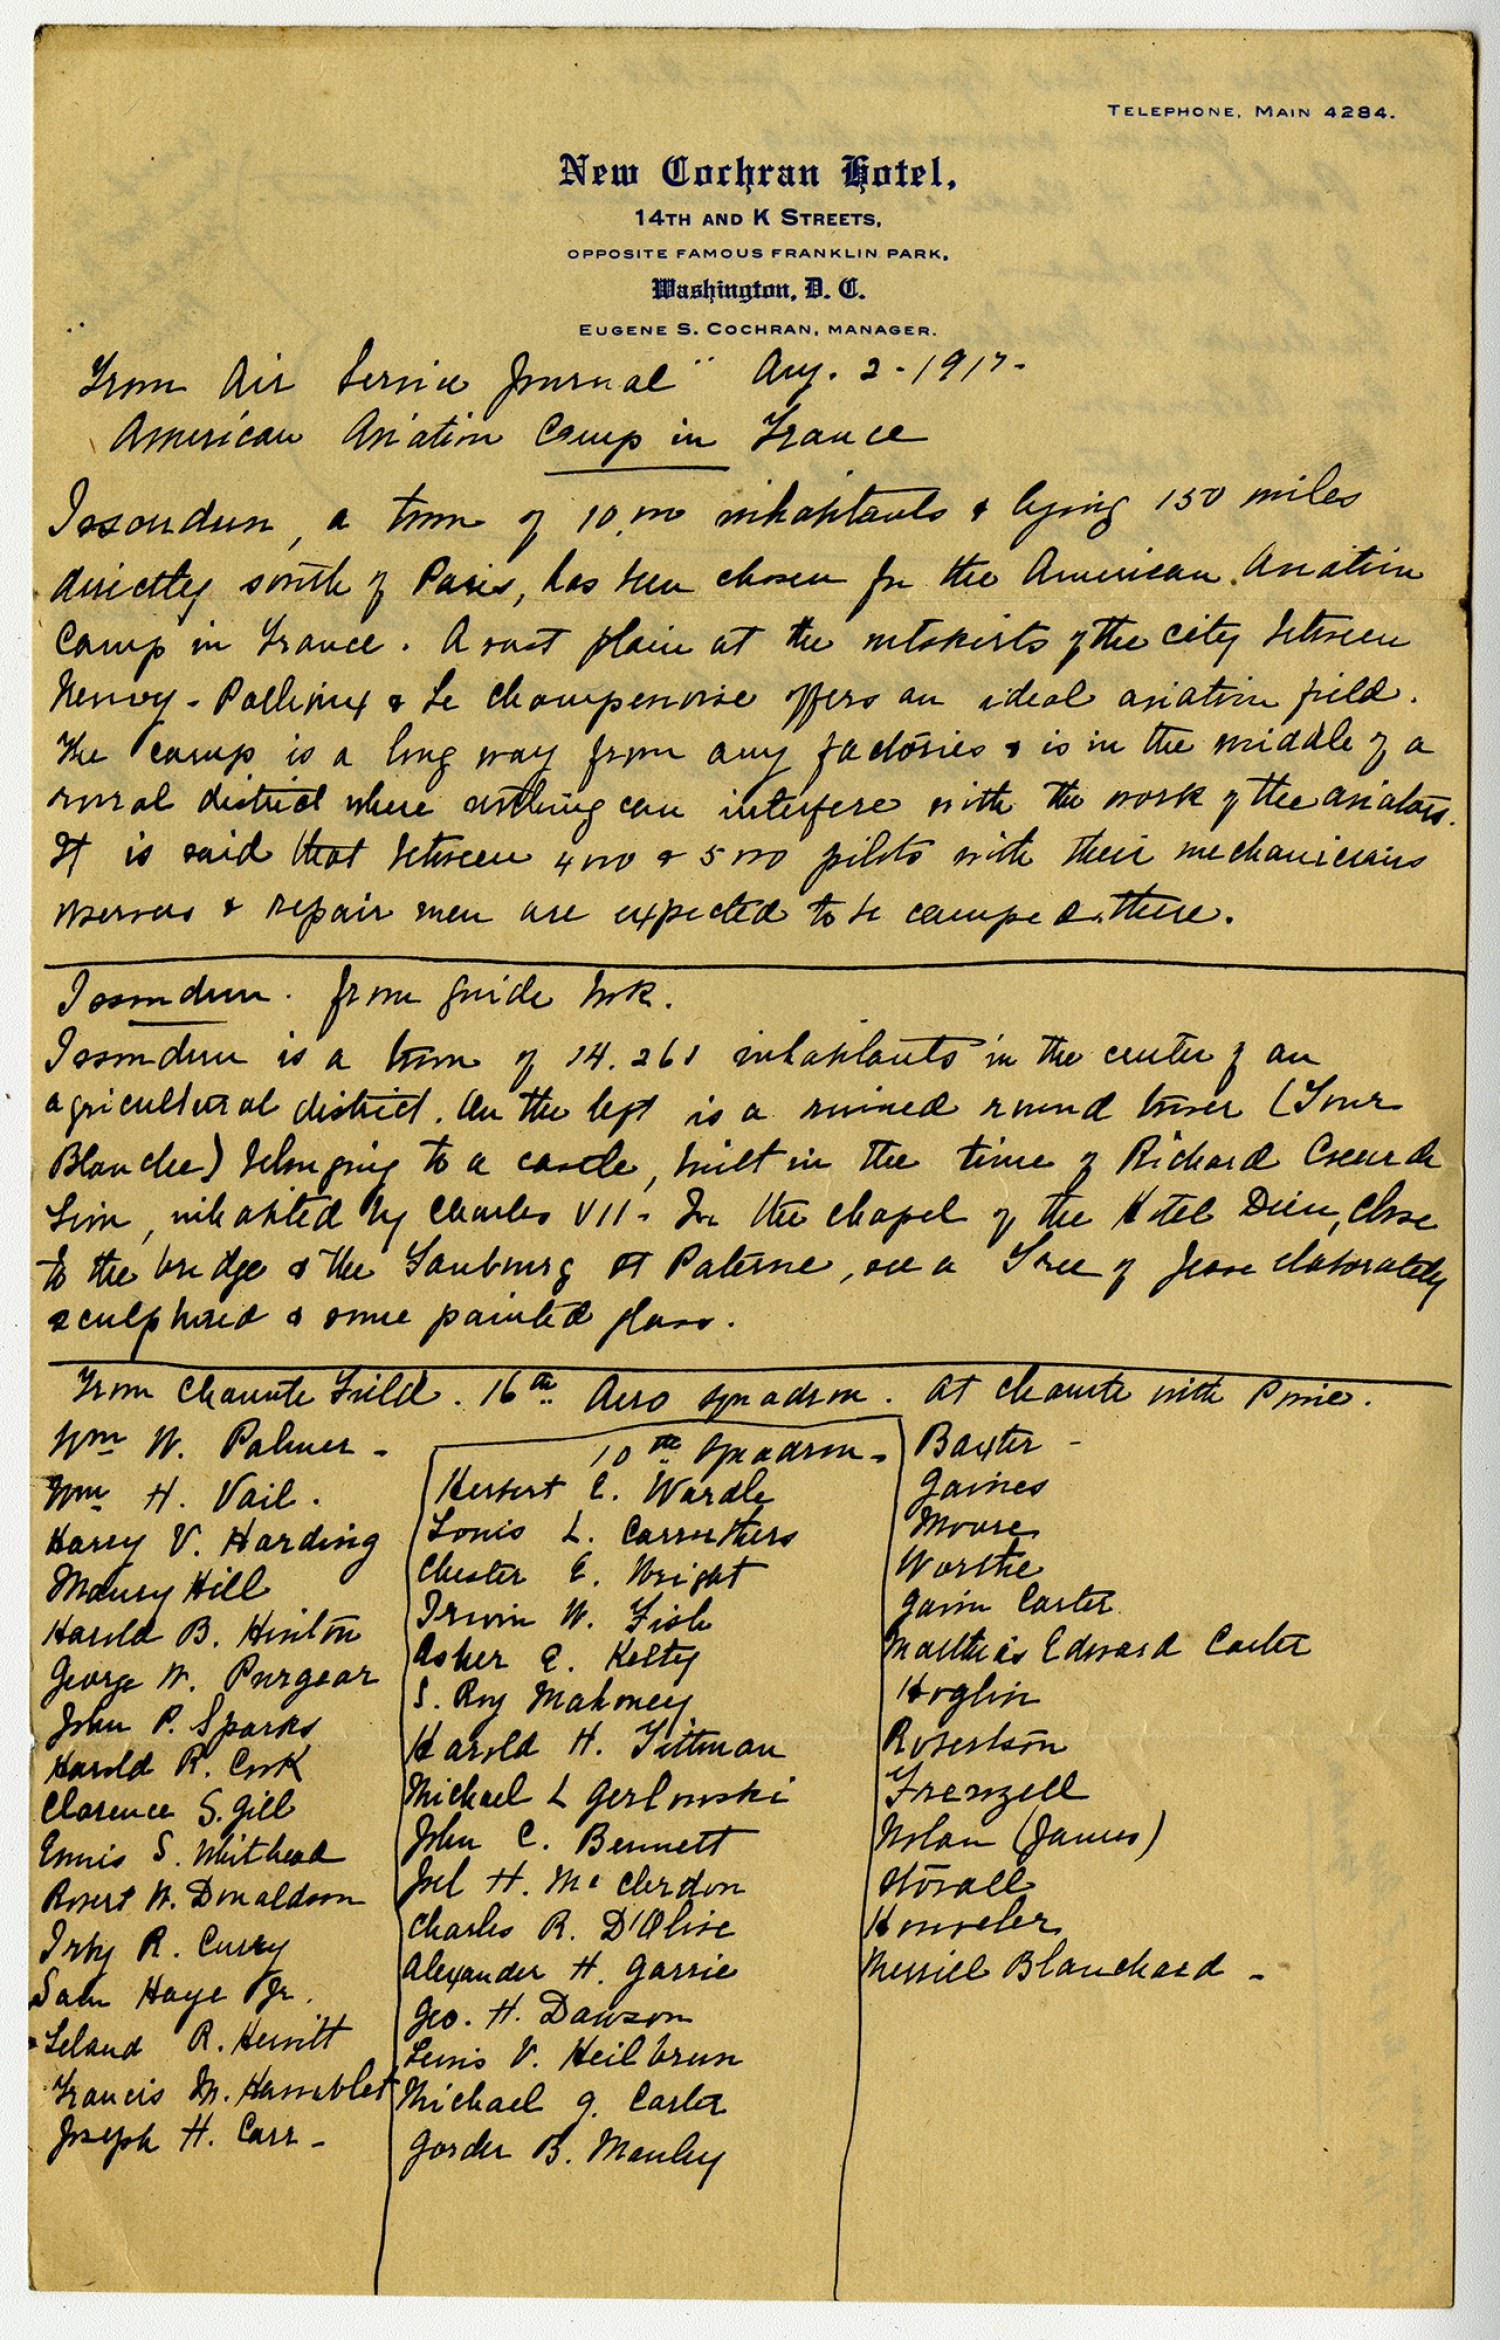 TELEPHONE, MAIN 4284.
New Cochran Hotel,
14TH AND K STREETS,
OPPOSITE FAMOUS FRANKLIN PARK,
Washington, D. C.
EUGENE S. COCHRAN, MANAGER.
"From Air Service Journal" Aug. 2 - 1917 -
American Aviation Camp in France
Issoudun, a town of 10,000 inhabitants & lying 150 miles
directly south of Paris, has been chosen for the American Aviation
Camp in France. A vast plain at the outskirts of the city between
& Le Champenoise offers an ideal aviation field.
The camp is a long way from any factories & is in the middle of a
rural district where nothing can interfere with the work of the aviators.
It is said that between 4000 & 5000 pilots with their mechanicians
observers & repair men are expected to be camped there.
Issoudun. from guide book.
Issoudun is a town of 14.261 inhabitants in the center of an
agricultural district. On the left is a ruined round tower (Tour
Blanche) belonging to a castle, built in the time of Richard Coeur de
Lion, inhabited by Charles VII - In the chapel of the Hotel Dieu, close
to the bridge & the Faubourg St Paterne, see a Tree of Jesse elaborately
sculptured & some painted glass.
From Chanute Field. 16th Aero Squadron. At Chanute with
Wm W. Palmer -
Wm H. Vail.
Harry V. Harding
Maury Hill
Harold B. Hinton
George W. Purgear
John P. Sparks
Harold R. Cook
Clarence S. Gill
Ennis S. Whithead
Robert W. Donaldson
Irby R. Curry
Sam Haye Jr.
Leland R. Hewitt
Francis M.
Joseph H. Carr -
10th Squadron -
Herbert E. Wardle
Louis L. Carruthers
Chester E. Wright
Irwin W. Fish
Asher E. Kelty
S. Roy Mahoney
Harold H. Tittman
Michael L Gerlowski
John C. Bennett
Joel H. McClerdon
Charles R. D'Olive
Alexander H. Garrie
Geo. H. Dawson
Lewis V. Heilbrun
Michael G. Carter
Gorder B. Manley
Baxter -
Gaines
Moore
Worthe
Gavin Carter
Matthias Edward Carter
Hoglin
Robertson
Frenzell
Nolan (James)
Stovall
Merriel Blanchard -